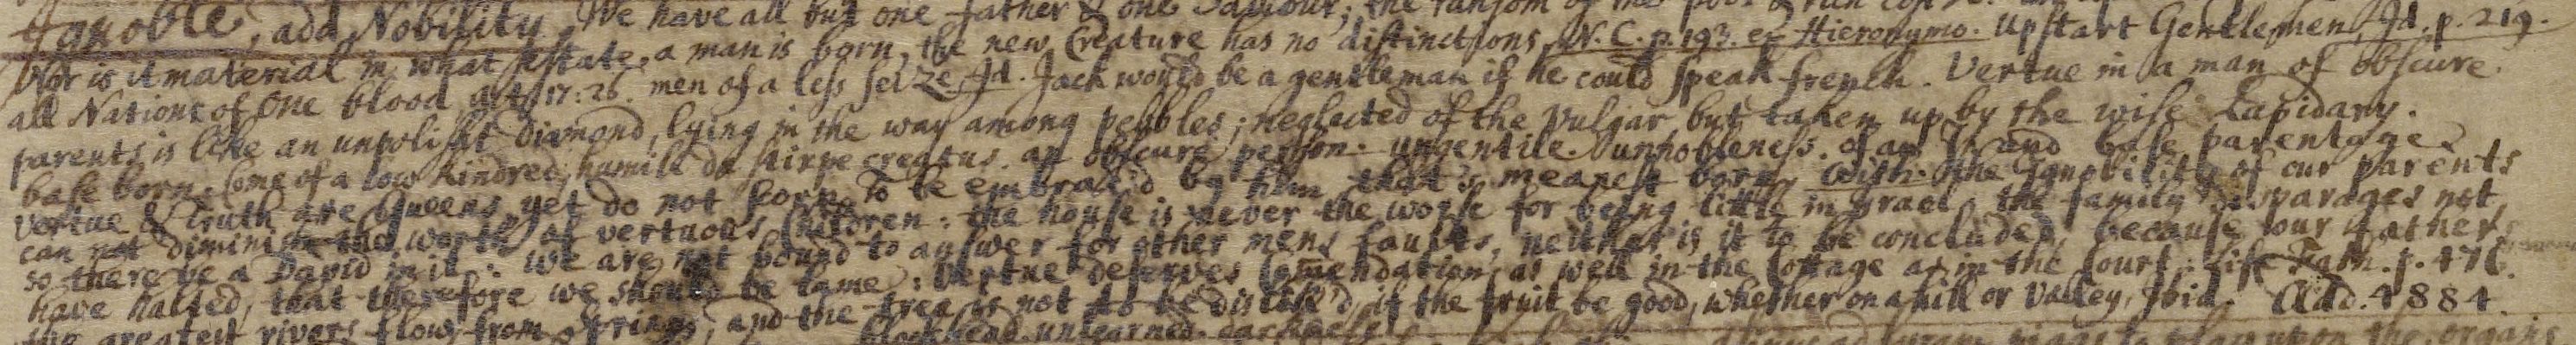 Ignoble, add Nobility. We have all but one father & one Saviour; the ransom of the poor & rich
Nor is it material in what estate a man is born, the new Creature has no distinctions, N. C. p. 193. ex Hieronymo. Upstart Gentlemen, Id. p. 219.
all Nations of One blood act. 17: 26. men of a less seize Id. Jack would be a gentleman if he could speak french. Vertue in a man of obscure
parents is like an unpolisht Diamond, lying in the way among pebbles; neglected of the Vulgar but taken up by the wise Lapidary.
base born. Come of a low kindred; humili de stirpe creatus. an obscure person. ungentile. unnobleness. of and base parentage
Vertue & truth are Queens, yet do not scorn to be embrac'd by him that's meanest born. With. The Ignobility of our parents
can not diminish the worth of vertuous Children: the house is never the worse for being little in Israel, the family disparages not
so there be a David in it: we are not bound to answer for other mens faults, neither is it to be concluded, because our fathers
have halted, that therefore we should be lame: Vertue deserves Comendation, as well in the Cottage as in the Court: Life Fath. p. 476.
the greatest rivers flow from springs, and the tree is not to be dislik'd, if the fruit be good, whether on a hill or Valley, Ibid. Add. 4884.
blockhead. unlearned. upon the organs